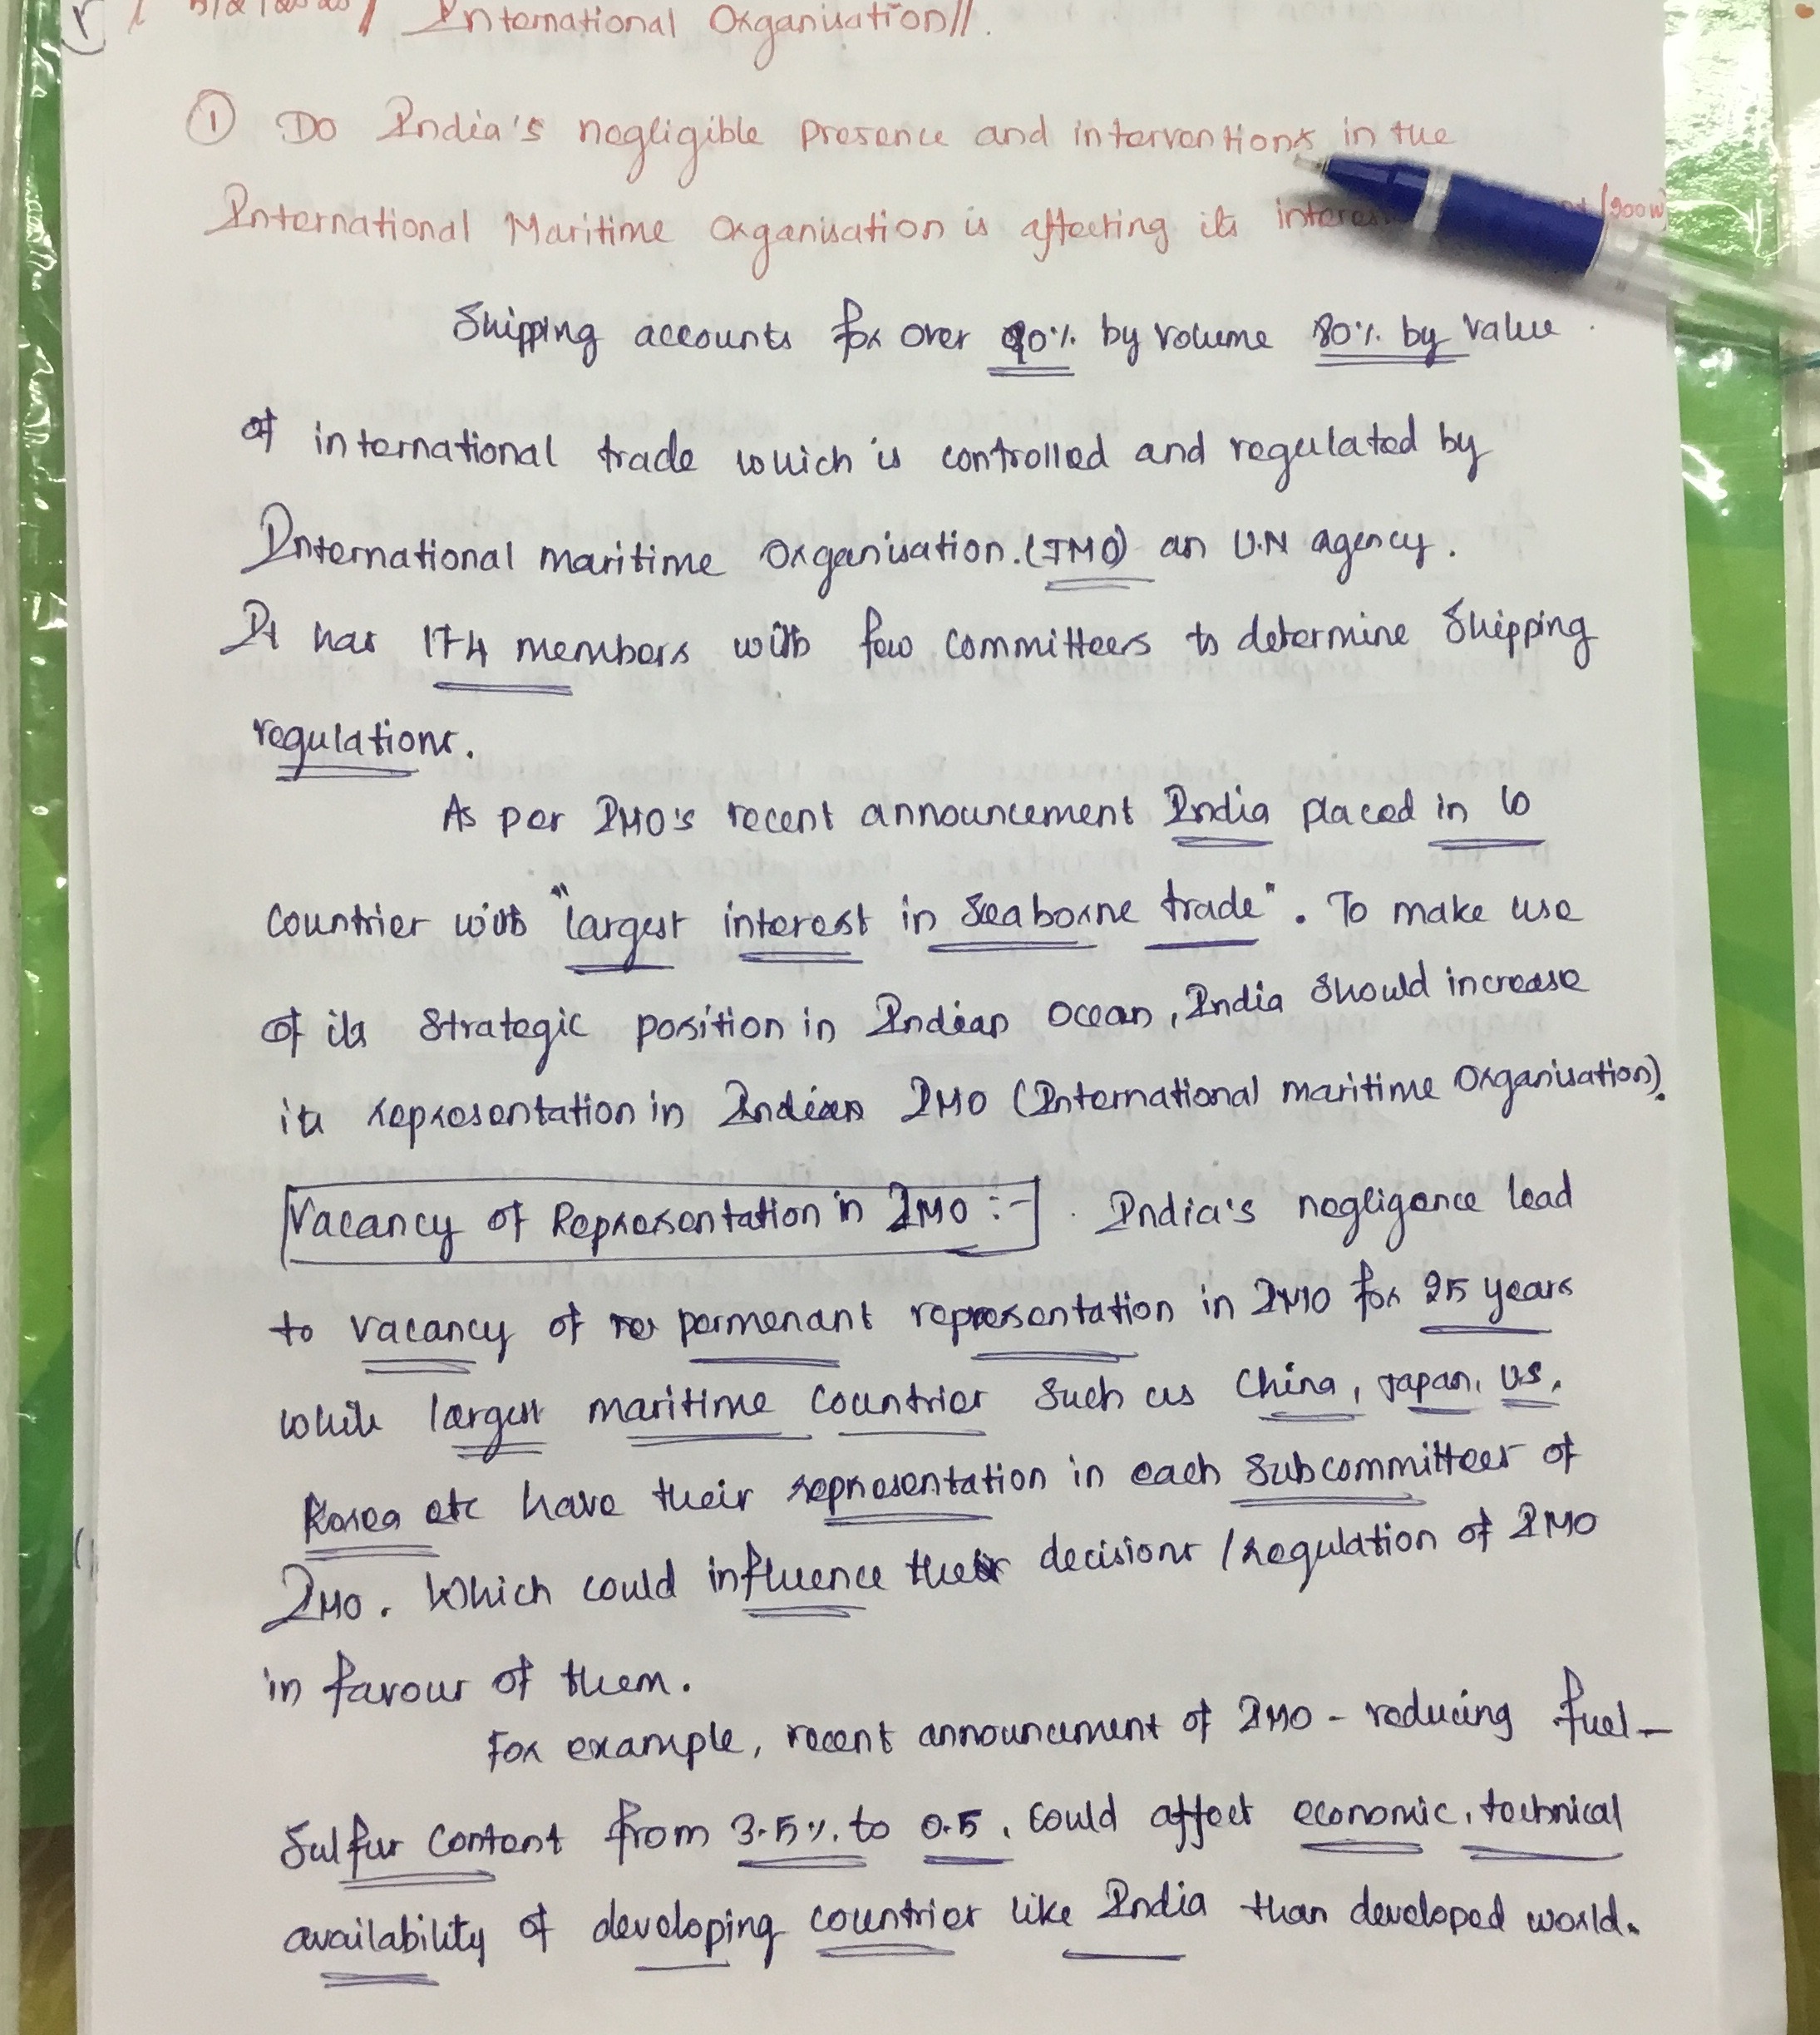 International Organisation//.
① Do India's negligible presence and interventions in the
International Maritime Organisation is affecting its (200w)
Shipping accounts for over 90% by volume 80% by value
of international trade which is controlled and regulated by
International maritime Organisation.(IMO) an U.N agency.
It has 174 members with few committees to determine shipping
regulations.
As per IMO's recent announcement India placed in 10
countries with "largest interest in seaborne trade". To make use
of its strategic position in Indian Ocean, India should increase
its representation in IMO (International maritime Organisation).
Vacancy of Representation in IMO :- India's negligence lead
to vacancy of permenant representation in IMO for 25 years
while largest maritime countries such as China, Japan, US,
Korea etc have their representation in each subcommittees of
IMO. Which could influence their decisions / regulation of IMO
in favour of them.
For example, recent announcement of IMO - reducing fuel-
sulfur content from 3.5% to 0.5, could affect economic, technical
availability of developing countries like India than developed world.